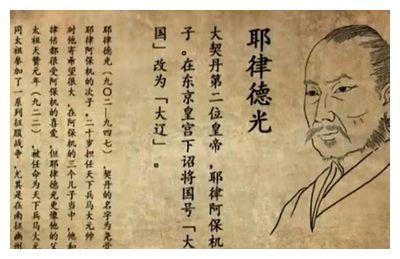 耶律德光
大契丹第二位皇帝，耶律阿保机
子。在东京皇宫下诏将国号「大
国」改为「大辽」。
耶律德光（九〇二－九四七），契丹的名字为尧骨
耶律阿保机的次子，二十岁担任天下兵马大元帅
对他寄希望很大，在阿保机的三个儿子当中，他和
律倍都很受阿保机的喜爱，但耶律德光更像他的父
太祖天赞元年（九二二），被任命为天下兵马大元
同太祖参加了一系列征服战争，尤其是在南征幽州